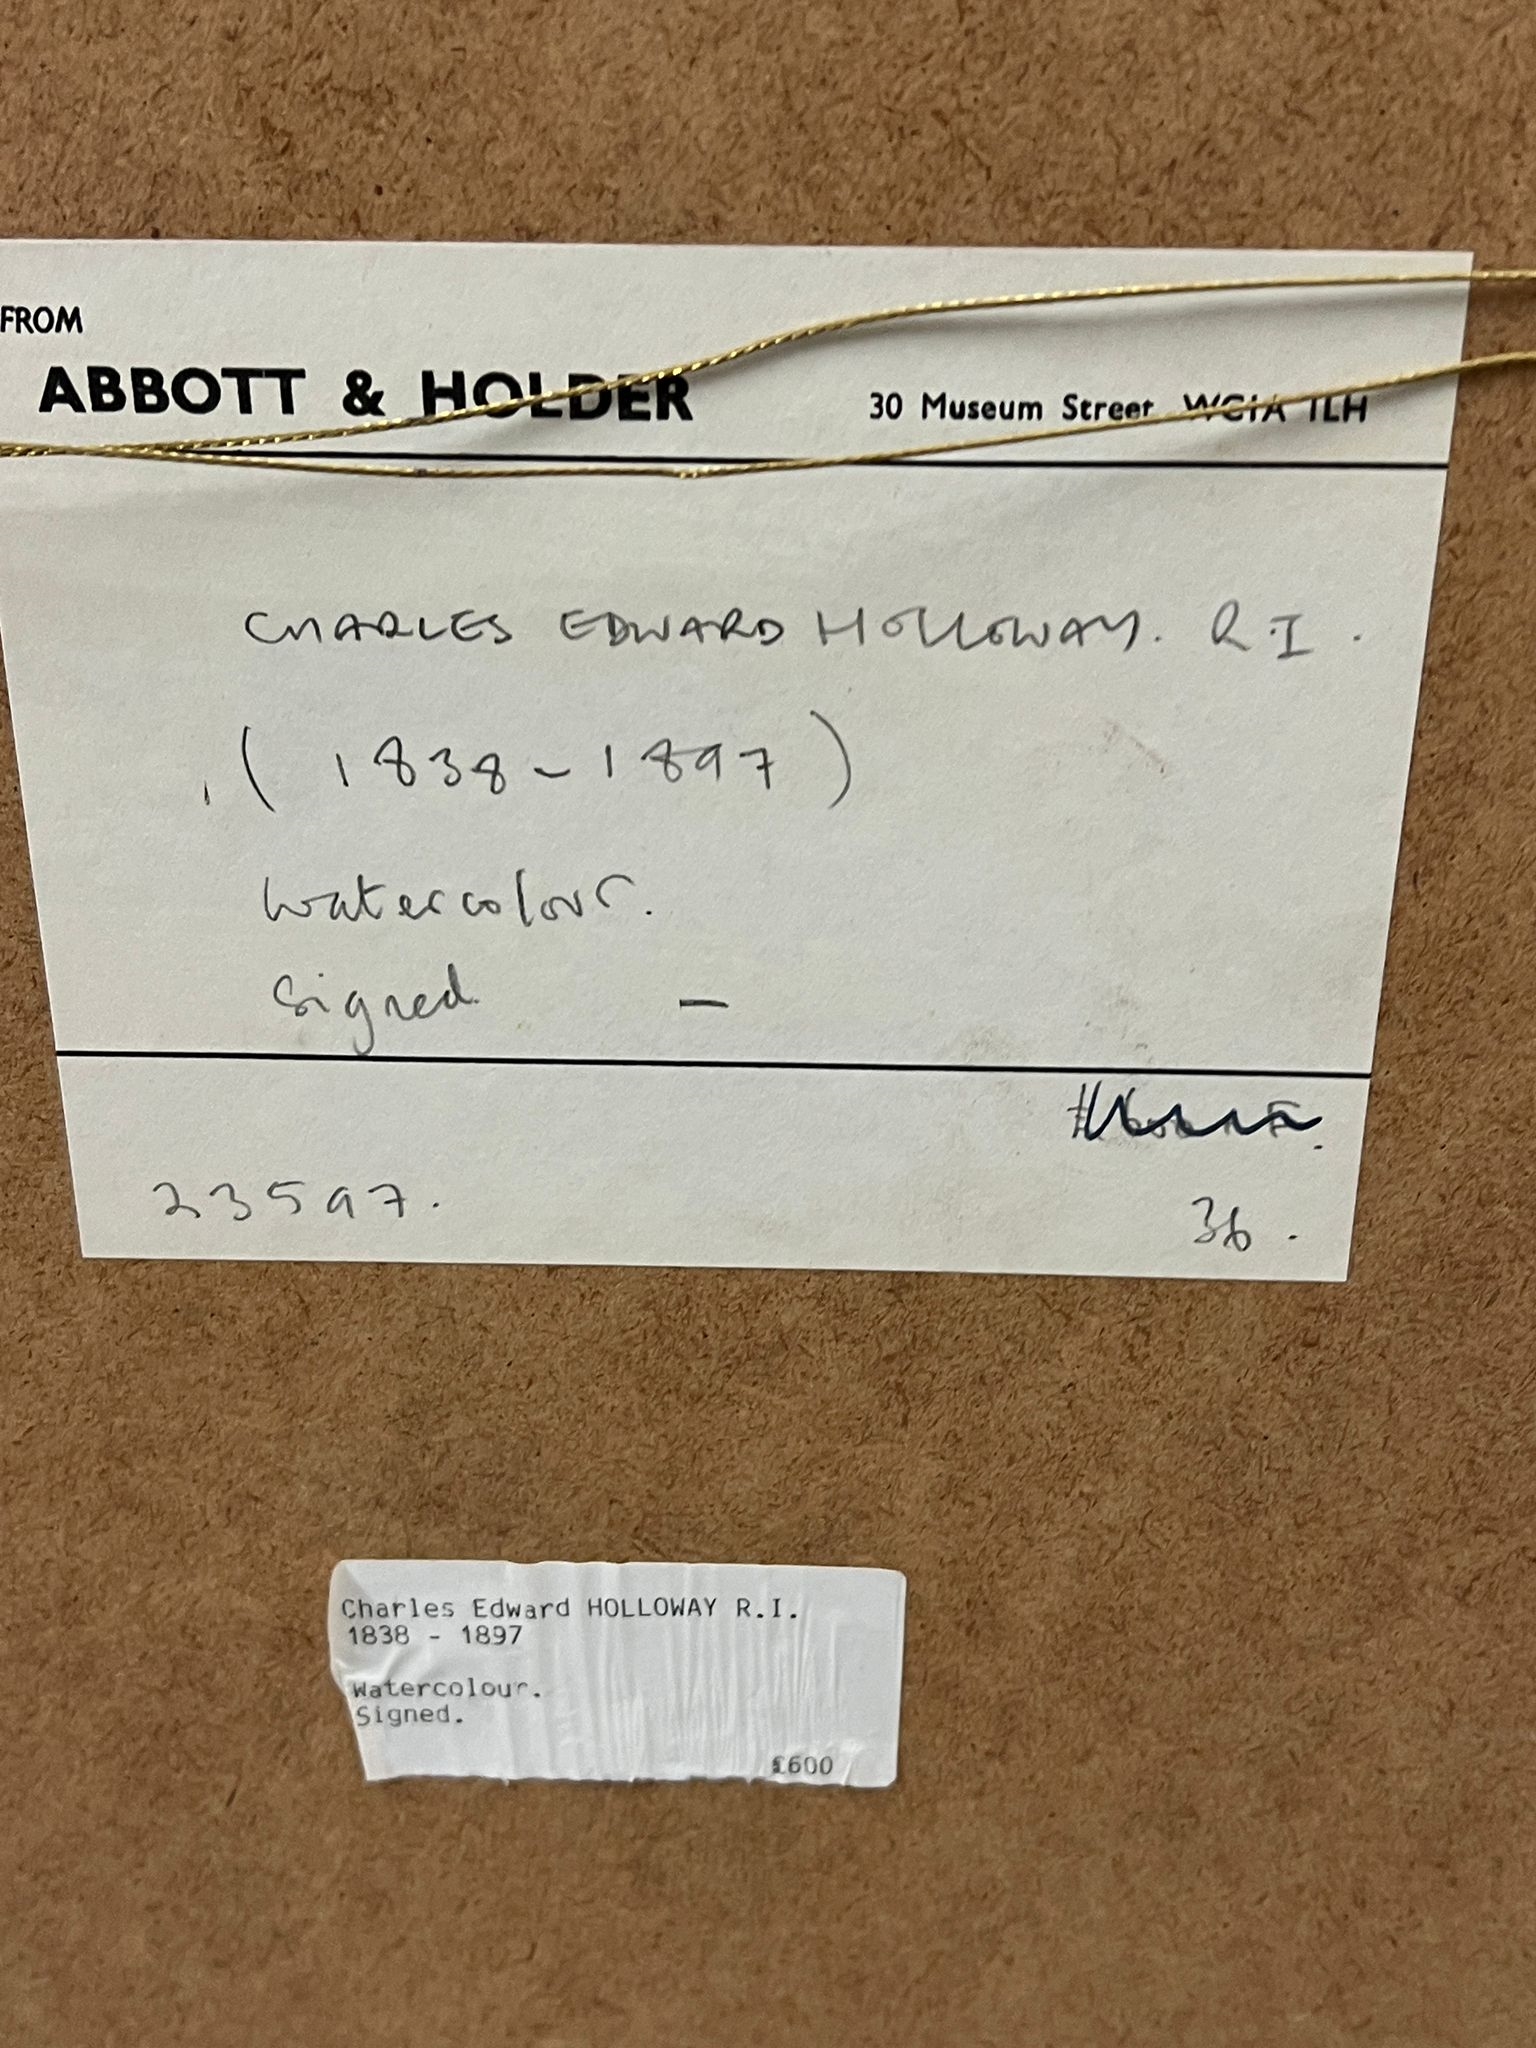 FROM
ABBOTT & HOLDER 30 Museum Street WC1A 1LH
CHARLES EDWARD HOLLOWAY. R.I.
(1838-1897)
Watercolour.
Signed -
23597. 36.
Charles Edward HOLLOWAY R.I.
1838 - 1897
Watercolour.
Signed.
£600